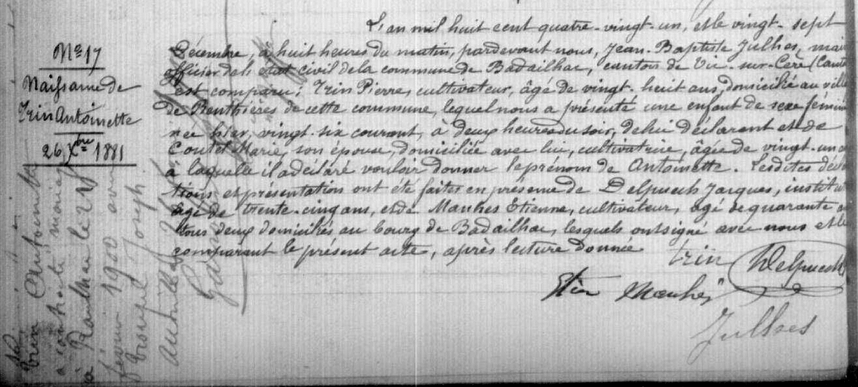 N° 17
Naissance de
Trin Antoinette
26 Xbre 1881
L'an mil huit cent quatre-vingt-un, et le vingt-sept
Décembre, à huit heures du matin, pardevant nous, Jean-Baptiste Julhes, mai
officier de l'état civil de la commune de Badailhac, canton de Vic-sur-Cère (Cant
est comparu: Trin Pierre, cultivateur, âgé de vingt-huit ans, domicilié au villa
de cette commune, lequel nous a présenté une enfant de sexe fémini
née hier, vingt-six courant, à deux heures du soir, de lui déclarant et de
Marie, son épouse, domiciliée avec lui, cultivatrice, âgée de vingt-un a
à laquelle il a déclaré vouloir donner le prénom de Antoinette. Lesdites décla
tions et présentation ont été faites en présence de Delpuech Jacques, institut
âgé de trente-cinq ans, et de Manhes Etienne, cultivateur, âgé de quarante
tous deux domiciliés au bourg de Badailhac, lesquels ont signé avec nous et le
comparant le présent acte, après lecture donnée
Trin Delpuech
Manhès
Julhes
Trin Antoinette
a contracté mariage
à Raulhac le
février 1900 avec
Joseph